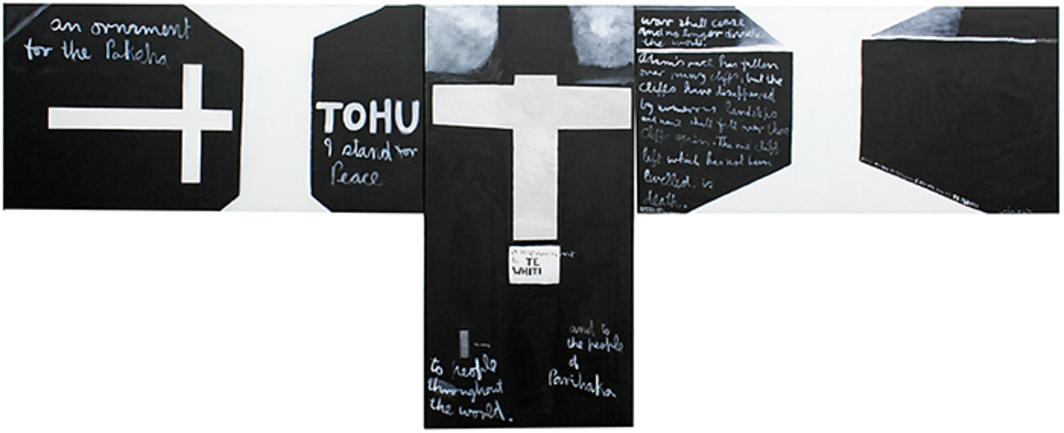 an ornament
for the Pakeha
TOHU
I stand for
Peace
TE
WHITI
to people
throughout
the world.
and to
the people
of
Parihaka
war shall cease
and no longer divide
the world.
Adam's race has fallen
over many cliffs, but the
cliffs have disappeared
by numerous landslips
and none shall fall over those
cliffs again. The one cliff
left which has not been
levelled is
death.